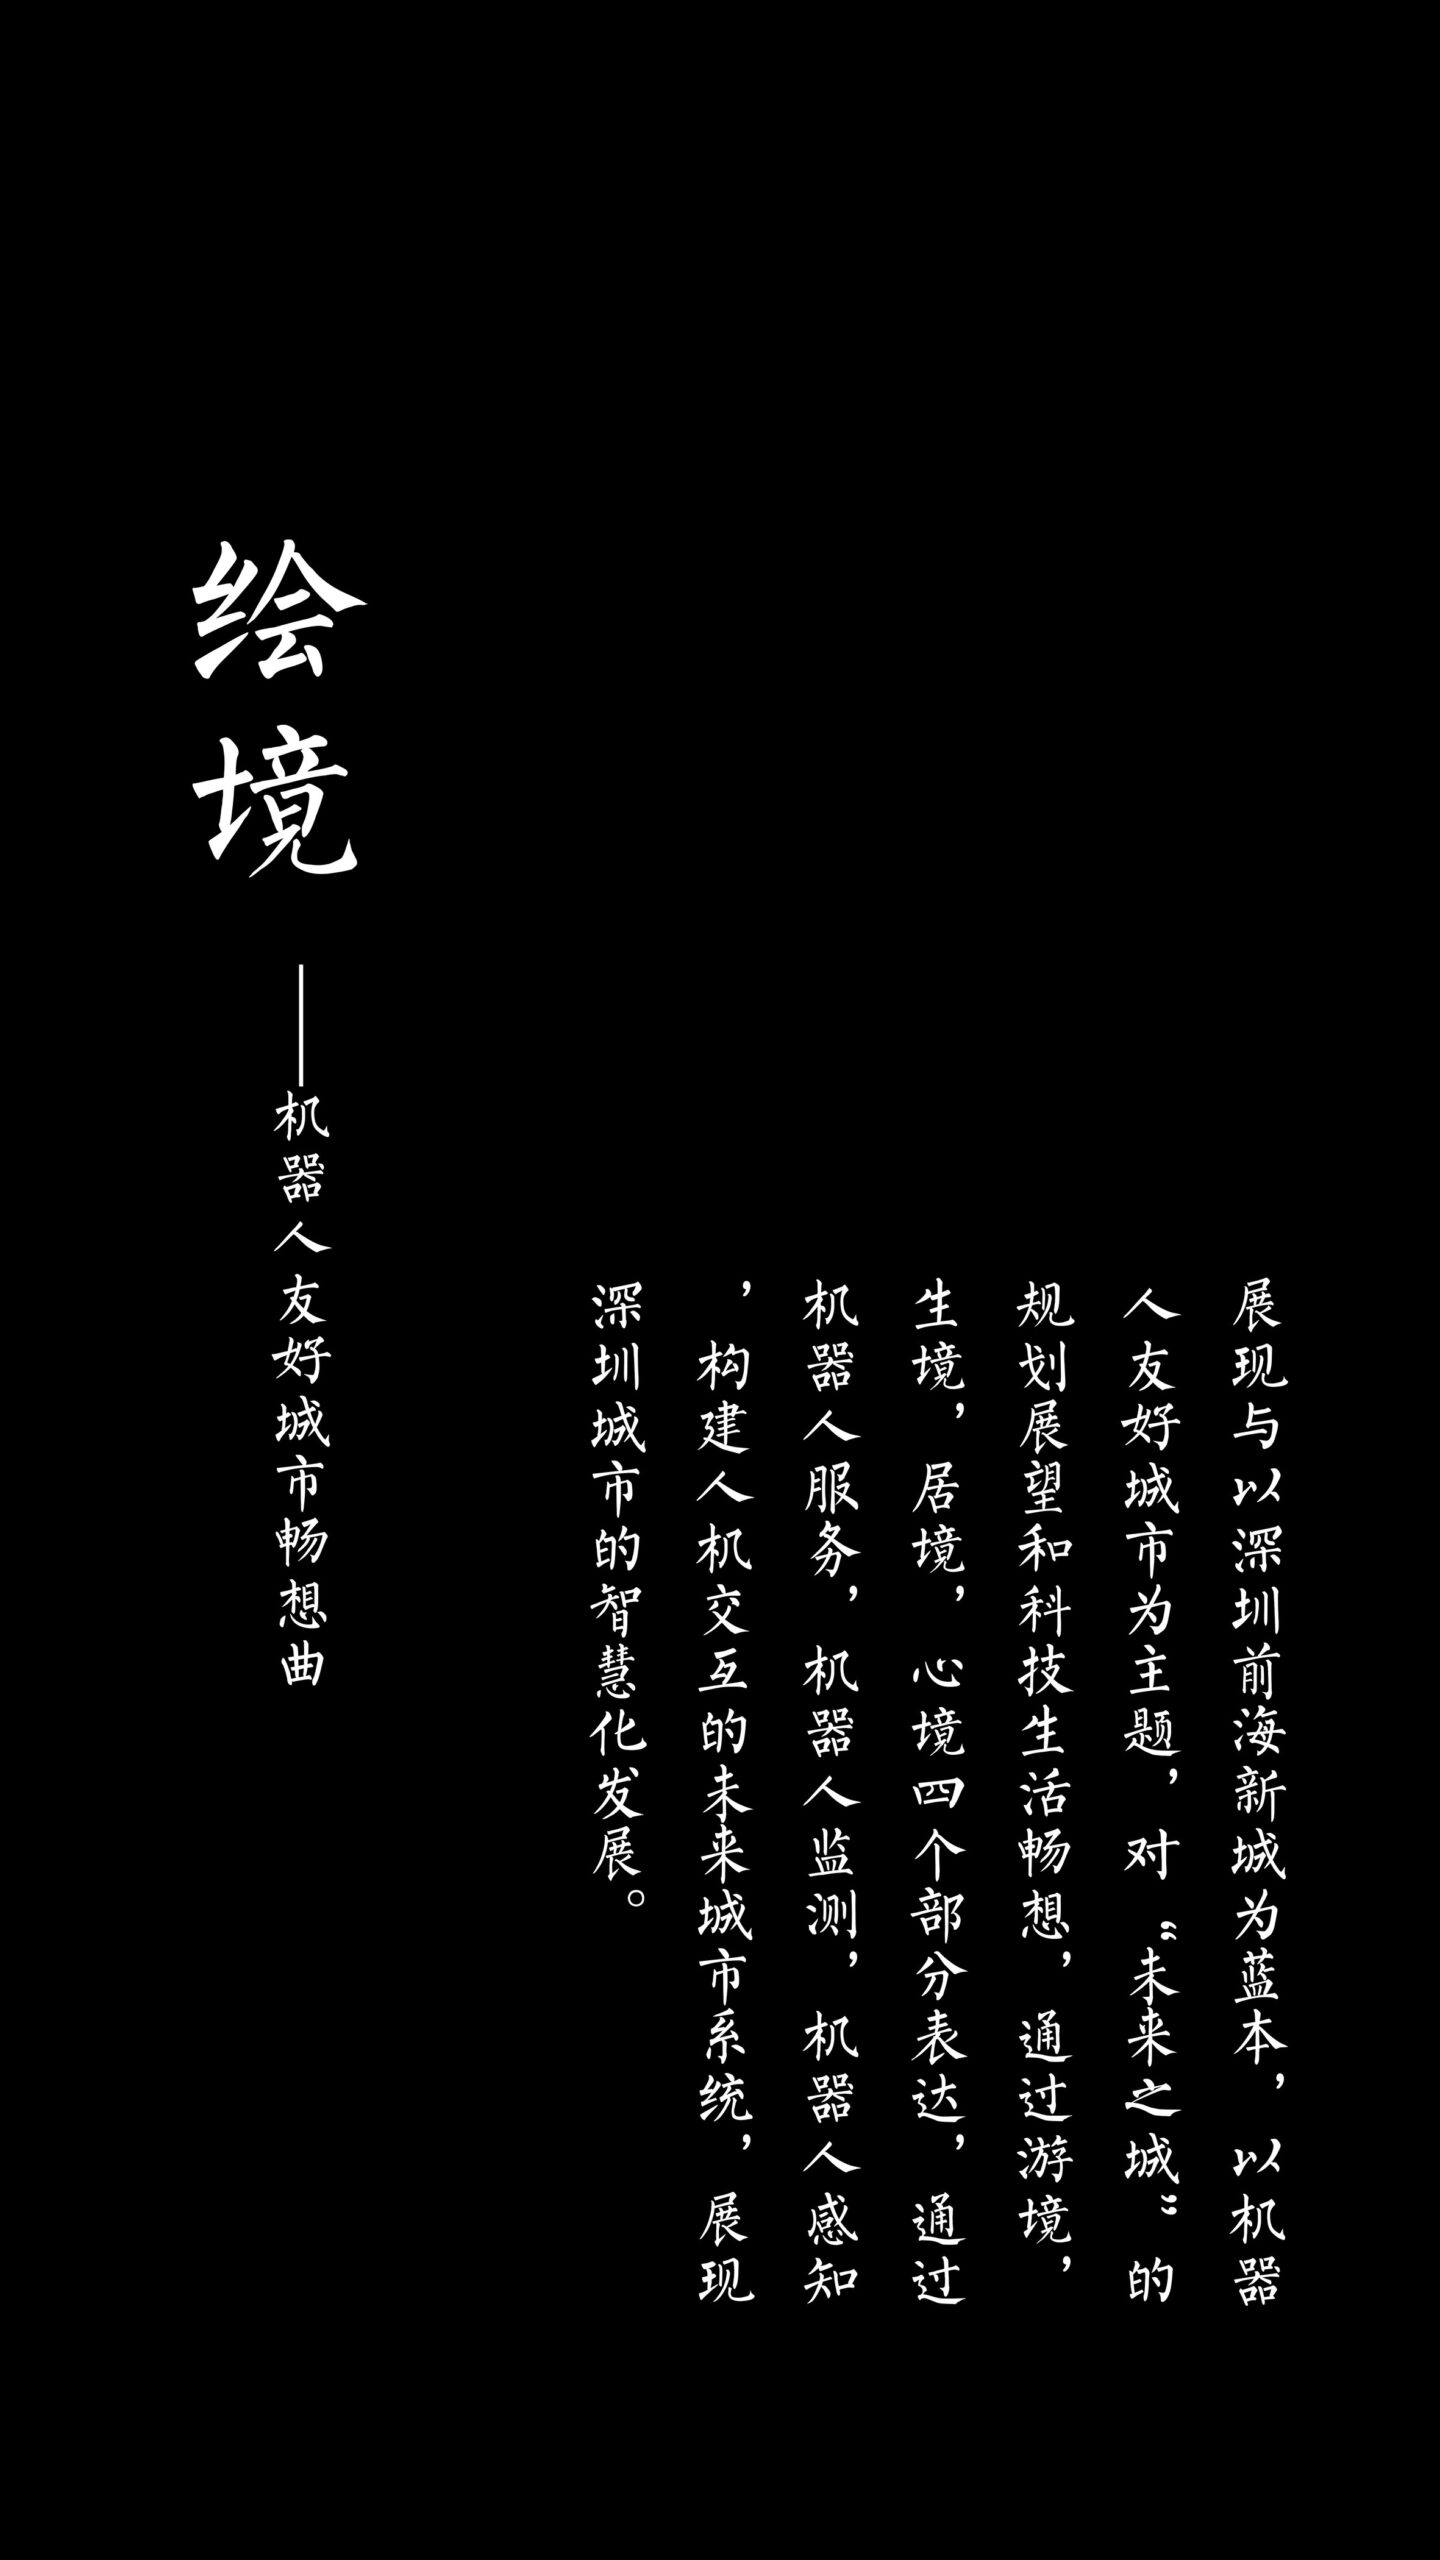 绘境
——机器人友好城市畅想曲
展现与以深圳前海新城为蓝本，以机器
人友好城市为主题，对“未来之城”的
规划展望和科技生活畅想，通过游境，
生境，居境，心境四个部分表达，通过
机器人服务，机器人监测，机器人感知
，构建人机交互的未来城市系统，展现
深圳城市的智慧化发展。